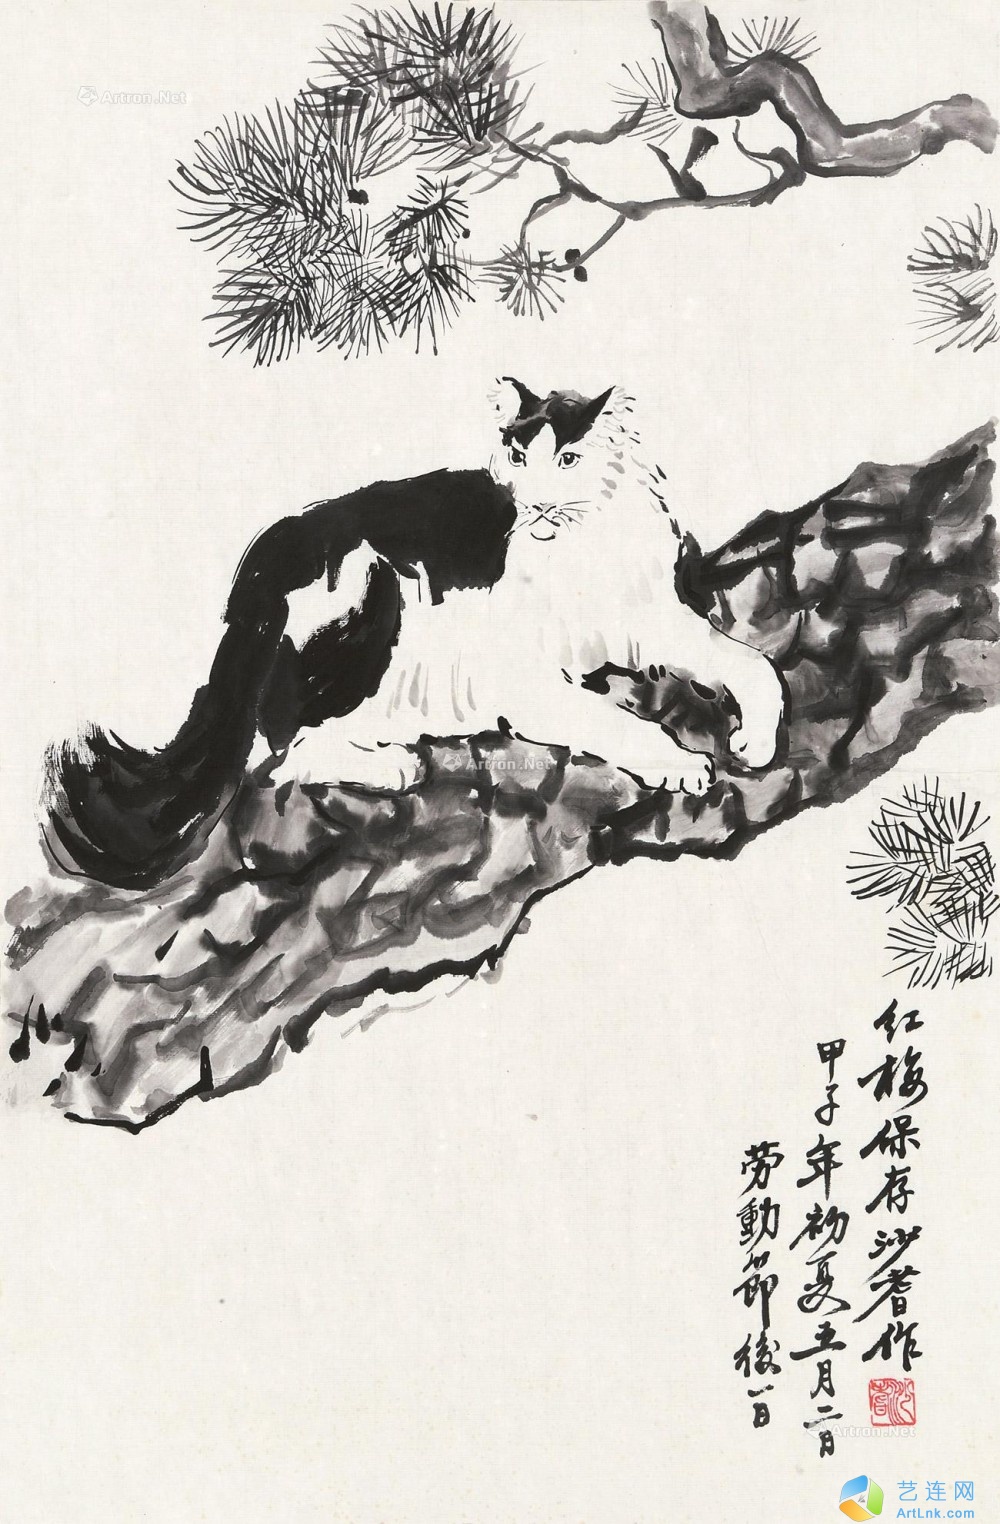 Artron.Net
Artron.Net
红梅保存沙耆作
甲子年初夏五月二日
劳動節後一日
沙耆
Artron.Net
艺连网
ArtLnk.com